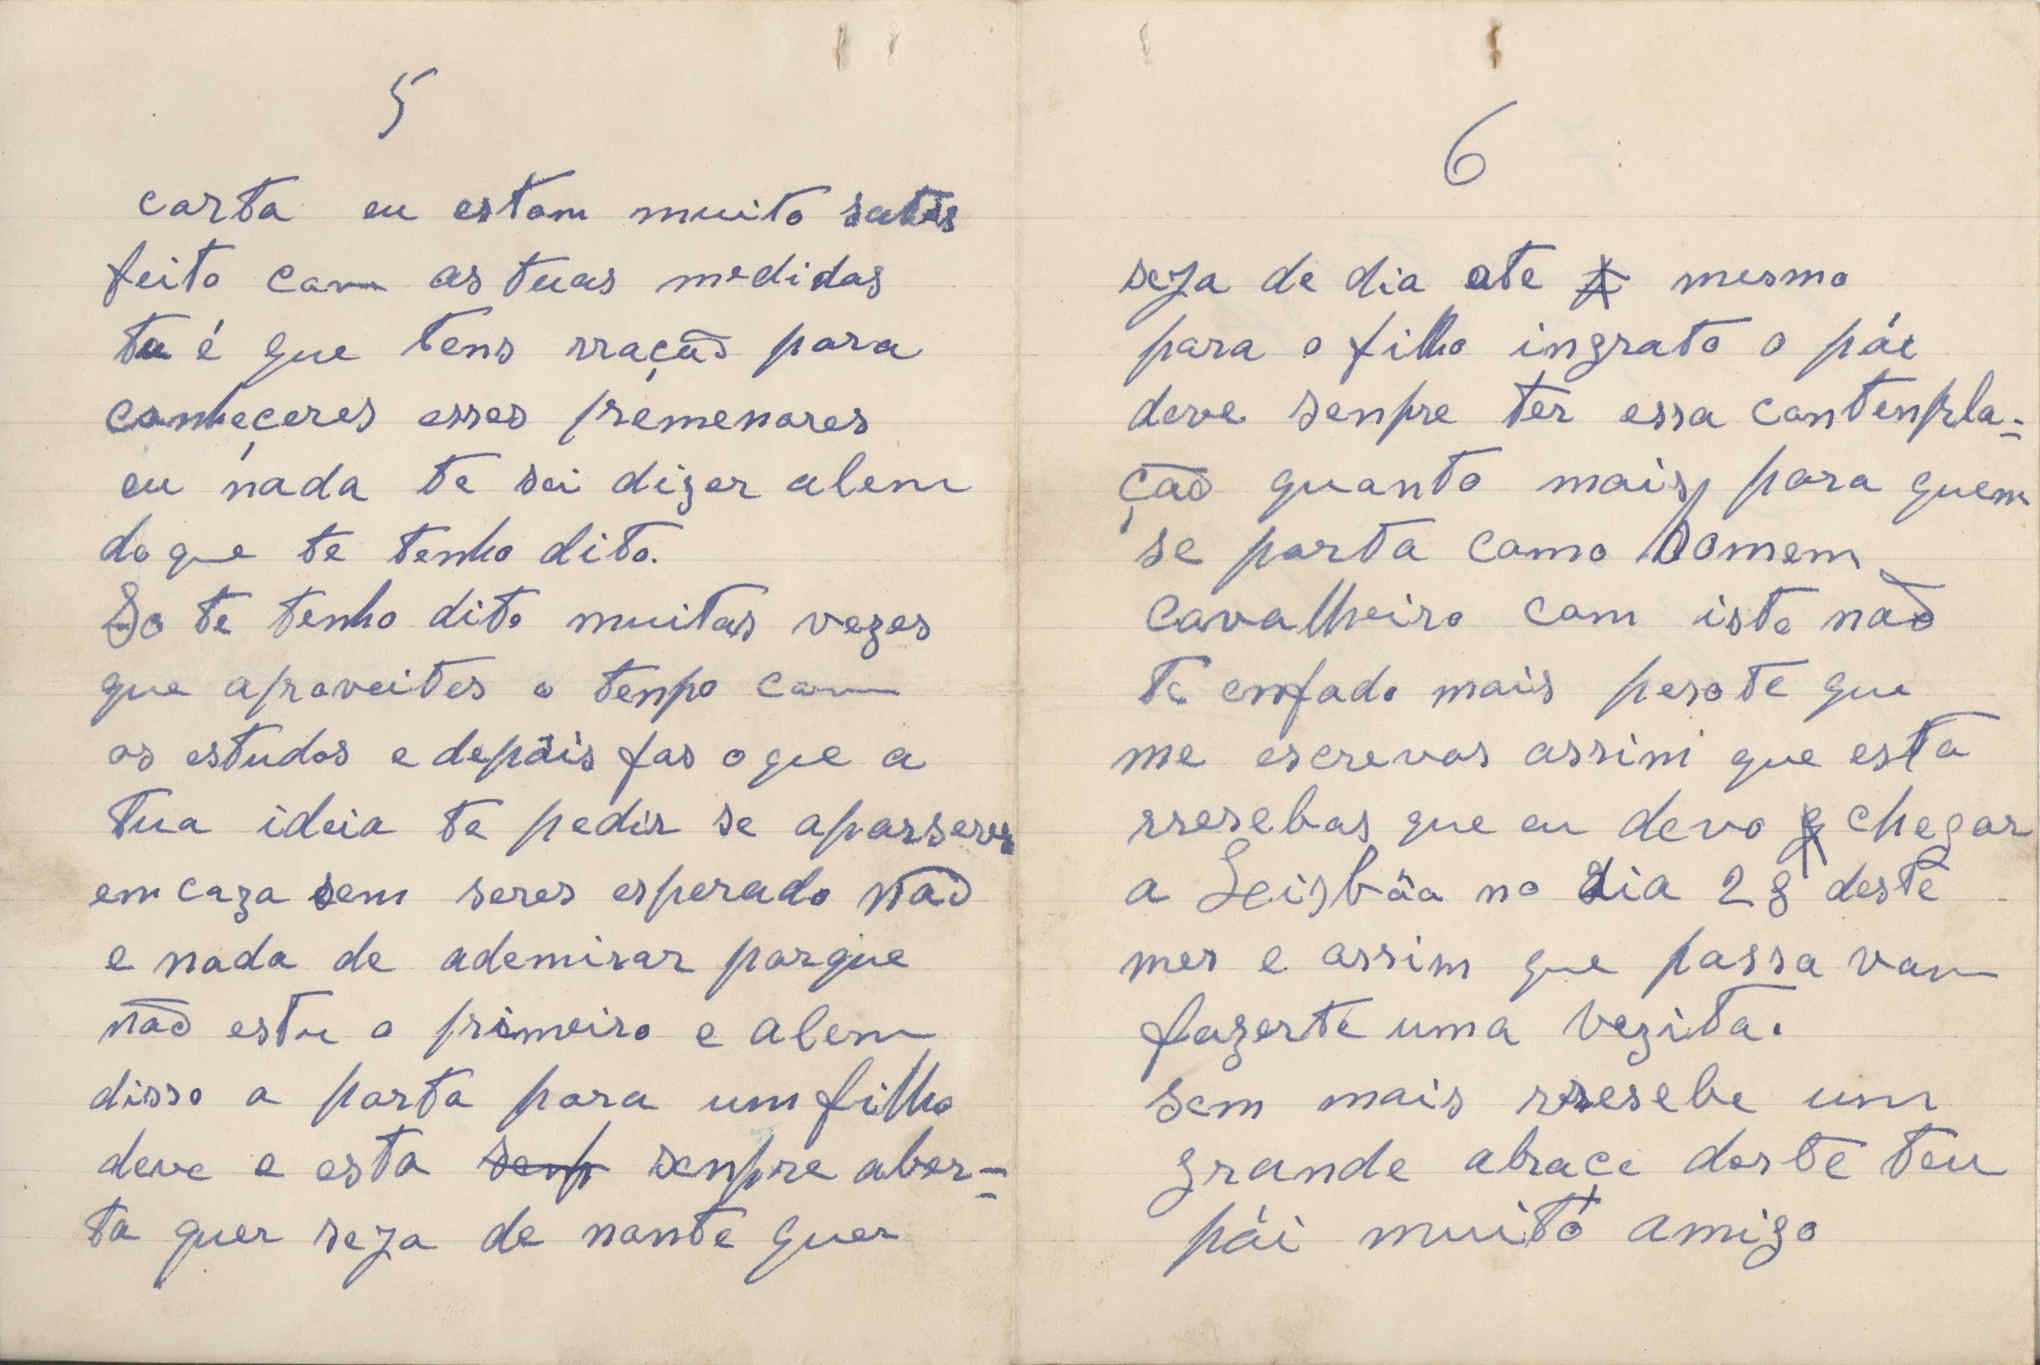 5
carta eu estom muito satis
feito com as tuas medidas
tu é que tens rração para
comheçeres esses premenores
eu nada te sei dizer alem
do que te tenho dito.
So te tenho dito muitas vezes
que aproveites o tenpo com
os estudos e depois fas o que a
tua ideia te pedir se aparseres
em caza sem seres esperado não
e nada de ademirar porque
não estu o primeiro e alem
disso a porta para um filho
deve e esta senp senpre aber=
ta quer seza de nonte quer
6
seza de dia ate mesmo
para o filho ingrato o pái
deve senpre ter essa contenpla=
ção quanto mais para quem
se porta como homem
cavalheiro com isto não
te emfado mais peso te que
me escrevas assim que esta
rresebas que eu devo chegar
a Leisbôa no dia 28 deste
mes e assim que possa vou
fazerte uma vezita.
sem mais rresebe um
grande abraçe deste teu
pái muito amigo